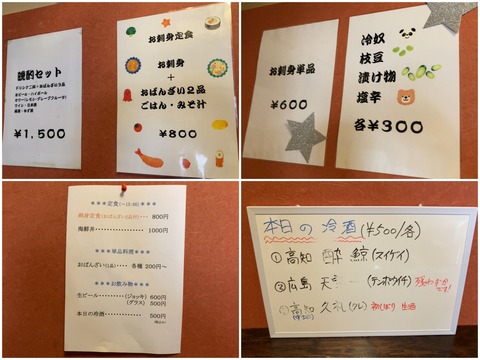 晩酌セット
ドリンク二杯＋おばんざい3品
生ビール・ハイボール
サワー(レモン・グレープフルーツ)
ワイン・日本酒
¥1,500
お刺身定食
お刺身
＋
おばんざい2品
ごはん・みそ汁
¥800
お刺身単品
¥600
冷奴
枝豆
漬け物
塩辛
各¥300
＊＊＊定食(～13:30)＊＊＊
刺身定食(おばんざい2品付)・・・ 800円
海鮮丼・・・・・・・・ 1000円
＊＊＊単品料理＊＊＊
おばんざい(1品)・・・ 各種 200円～
＊＊＊お飲み物＊＊＊
生ビール・・・(ジョッキ) 600円
(グラス) 500円
本日の冷酒・・・・・・ 500円
(税込み)
本日の冷酒(¥500/各)
①高知 酔鯨(スイゲイ)
②広島 天宝一(テンポウイチ) 残りわずかです!
③高知 久礼(クレ) 初しぼり 生酒